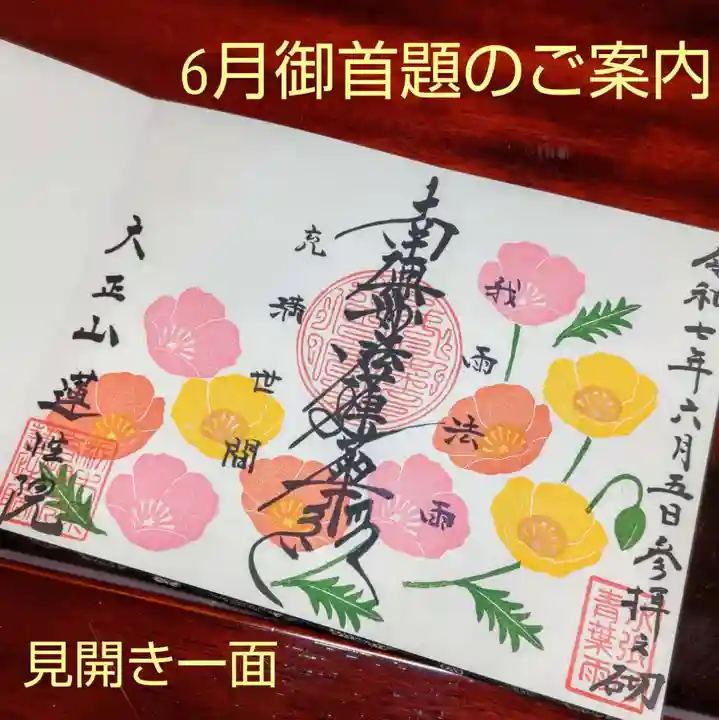 6月御首題のご案内
令和七年六月五日参拝之砌
我雨法雨
充満世間
南無妙法蓮華経
大正山蓮性院
青葉雨
見開き一面